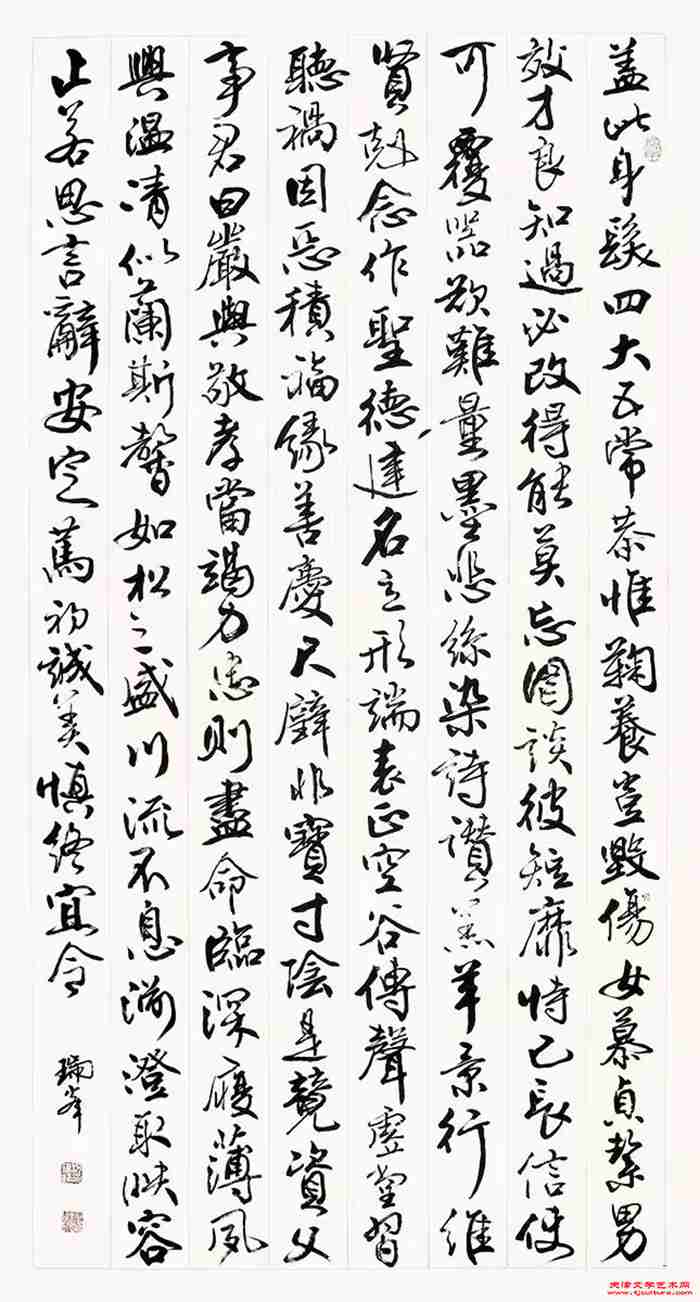 盖此身髮四大五常恭惟鞠養豈毀傷女慕貞絜男
效才良知過必改得能莫忘罔談彼短靡恃己長信使
可覆器欲難量墨悲絲染詩讚羔羊景行維
賢剋念作聖德建名立形端表正空谷傳聲虛堂習
聽禍因惡積福緣善慶尺璧非寶寸陰是競資父
事君曰嚴與敬孝當竭力忠則盡命臨深履薄夙
興溫清似蘭斯馨如松之盛川流不息淵澄取映容
止若思言辭安定篤初誠美慎終宜令
瑞峰
天津文学艺术网
www.tjculture.com